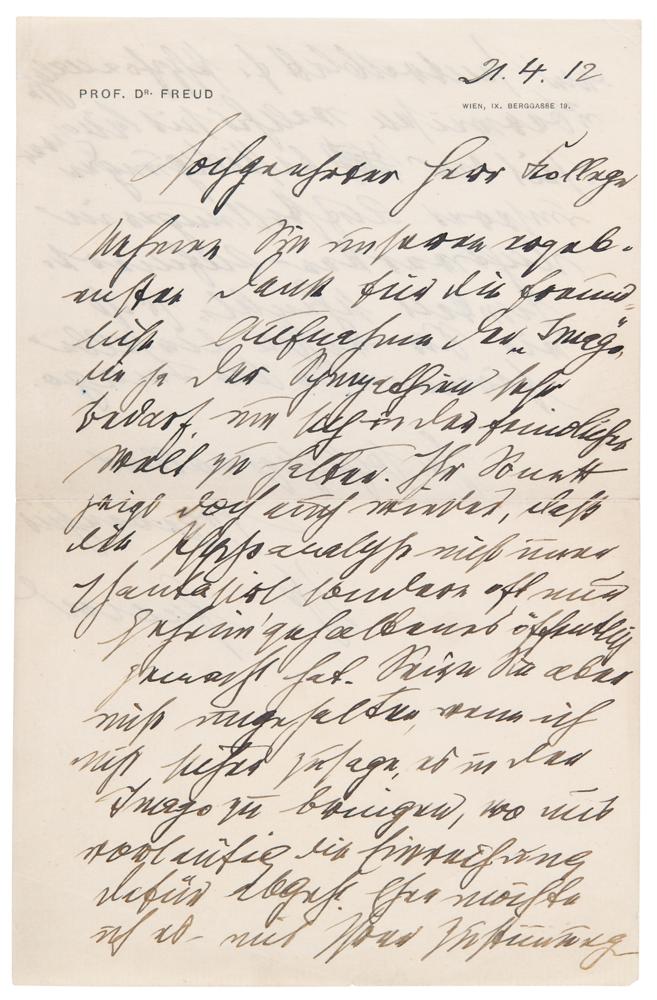 21. 4. 12
PROF. Dr. FREUD
WIEN, IX. BERGGASSE 19.
Hochgeehrter Herr Kollege
Nehmen Sie unseren ergeb-
ensten Dank für die freund-
liche Aufnahme der „Imago“,
die ja der Sympathien sehr
bedarf, um sich in der feindlichen
Welt zu halten. Ihr Sonett
zeigt doch auch wieder, daß
die Psychoanalyse nicht
phantasirt sondern oft nur
geheimgehaltenes öffentlich
gemacht hat. Seien Sie aber
nicht ungehalten, wenn ich
nicht sicher zusage, es in der
Imago zu bringen, wo uns
vorläufig die Einreihung
dafür abgeht. Eher möchte
ich es mit Ihrer Zustimmung